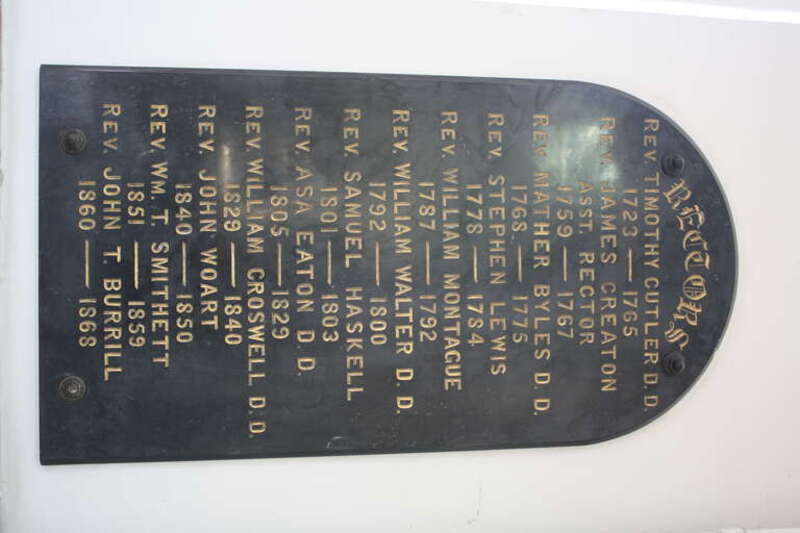 RECTORS
REV. TIMOTHY CUTLER D.D.
1723 — 1765
REV. JAMES GREATON
ASST. RECTOR
1759 — 1767
REV. MATHER BYLES D.D.
1768 — 1775
REV. STEPHEN LEWIS
1778 — 1784
REV. WILLIAM MONTAGUE
1787 — 1792
REV. WILLIAM WALTER D.D.
1792 — 1800
REV. SAMUEL HASKELL
1801 — 1803
REV. ASA EATON D.D.
1805 — 1829
REV. WILLIAM CROSWELL D.D.
1829 — 1840
REV. JOHN WOART
1840 — 1850
REV. WM. T. SMITHETT
1851 — 1859
REV. JOHN T. BURRILL
1860 — 1868